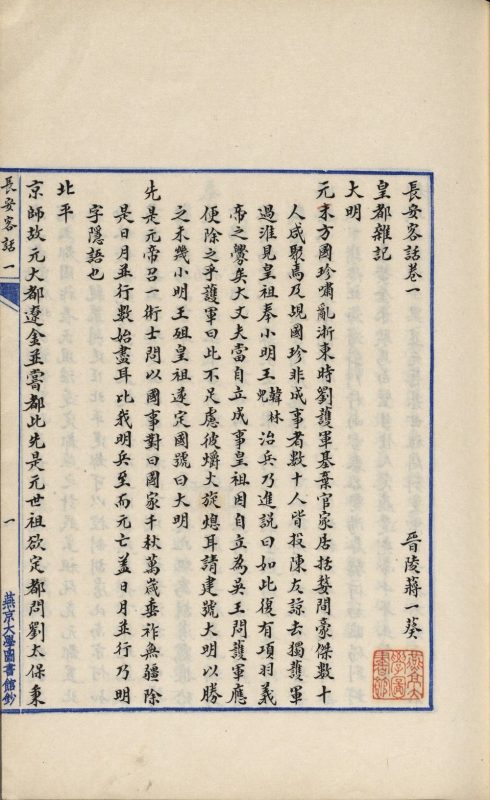 長安客話卷一
晉陵蔣一葵
皇都雜記
大明
元末方國珍嘯亂浙東時劉護軍基棄官家居括婺間豪傑數十
人咸聚焉及覘國珍非成事者數十人皆投陳友諒去獨護軍
過淮見皇祖奉小明王韓林兒治兵乃進說曰如此復有項羽義
帝之釁矣大丈夫當自立成事皇祖因自立為吳王問護軍應
便除之乎護軍曰此不足慮彼爝火旋熄耳請建號大明以勝
之未幾小明王殂皇祖遂定國號曰大明
先是元帝召一術士問以國事對曰國家千秋萬歲垂祚無疆除
是日月並行數始盡耳比我明兵至而元亡蓋日月並行乃明
字隱語也
北平
京師故元大都遼金並嘗都此先是元世祖欲定都問劉太保秉
長安客話 一
一
燕京大學圖書館鈔
燕京大
學圖
書館